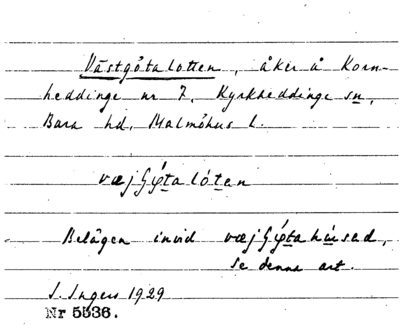 Västgötalotten, åker å Korn-
heddinge nr 7, Kyrkheddinge sn,
Bara hd, Malmöhus l.
Belägen invid
se denna art.
I. Ingers 1929
Nr 5536.